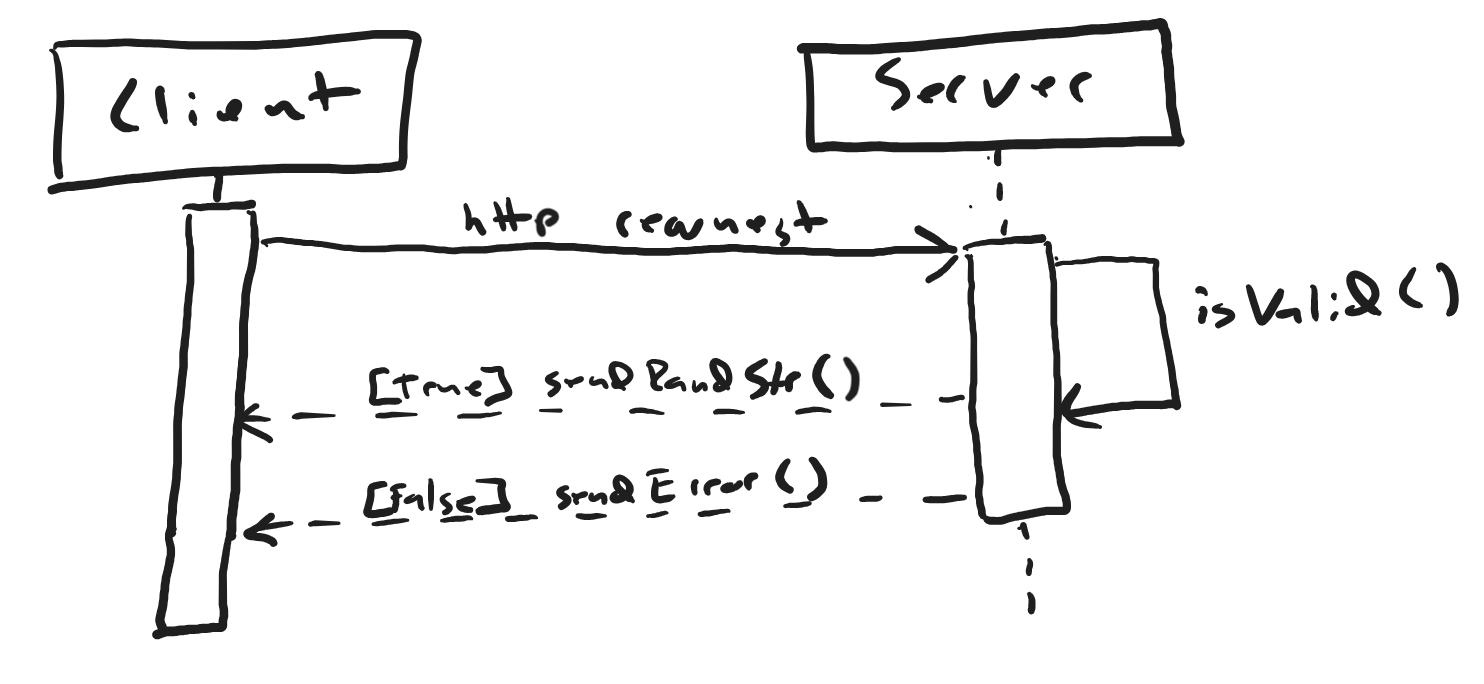 Client
Server
http request
isValid()
[True] sendRandStr()
[False] sendError()